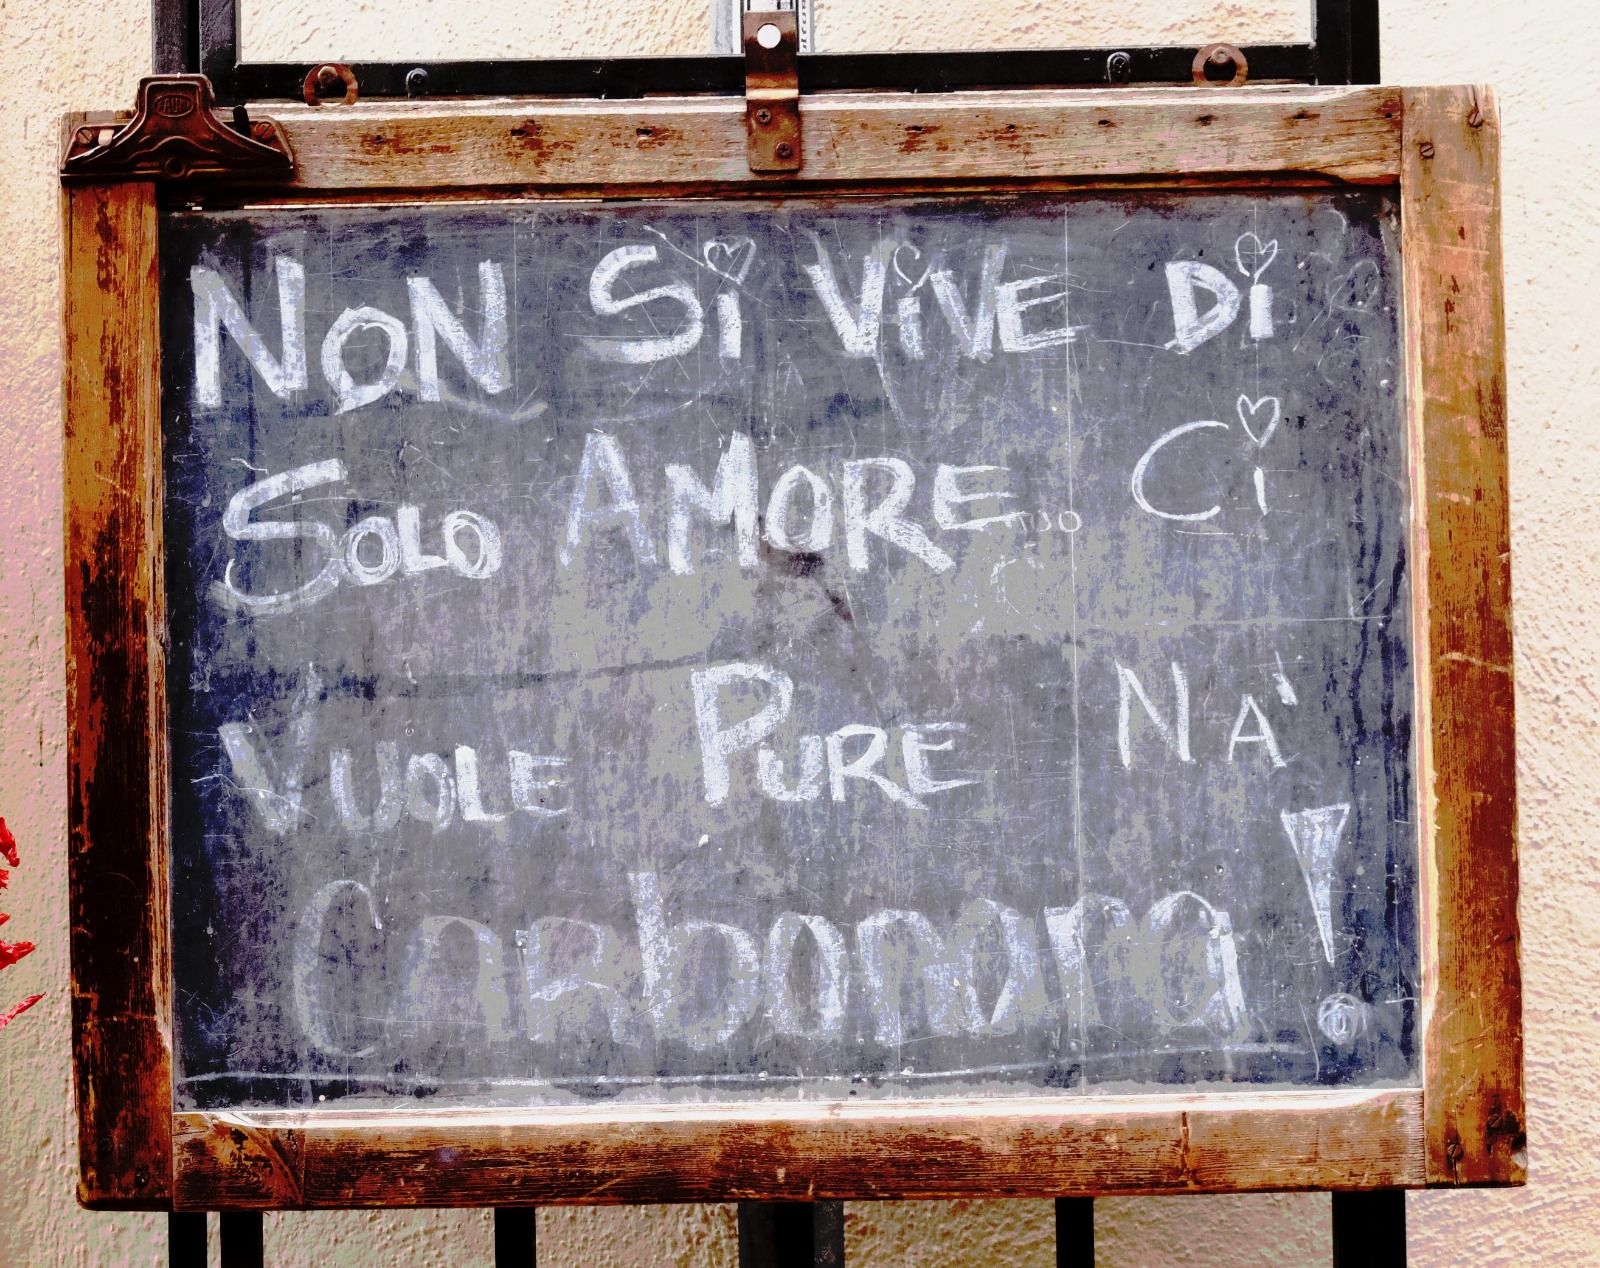 NON Si ViVE Di
SOLO AMORE... Ci
VUOLE PURE NA'
Carbonara!